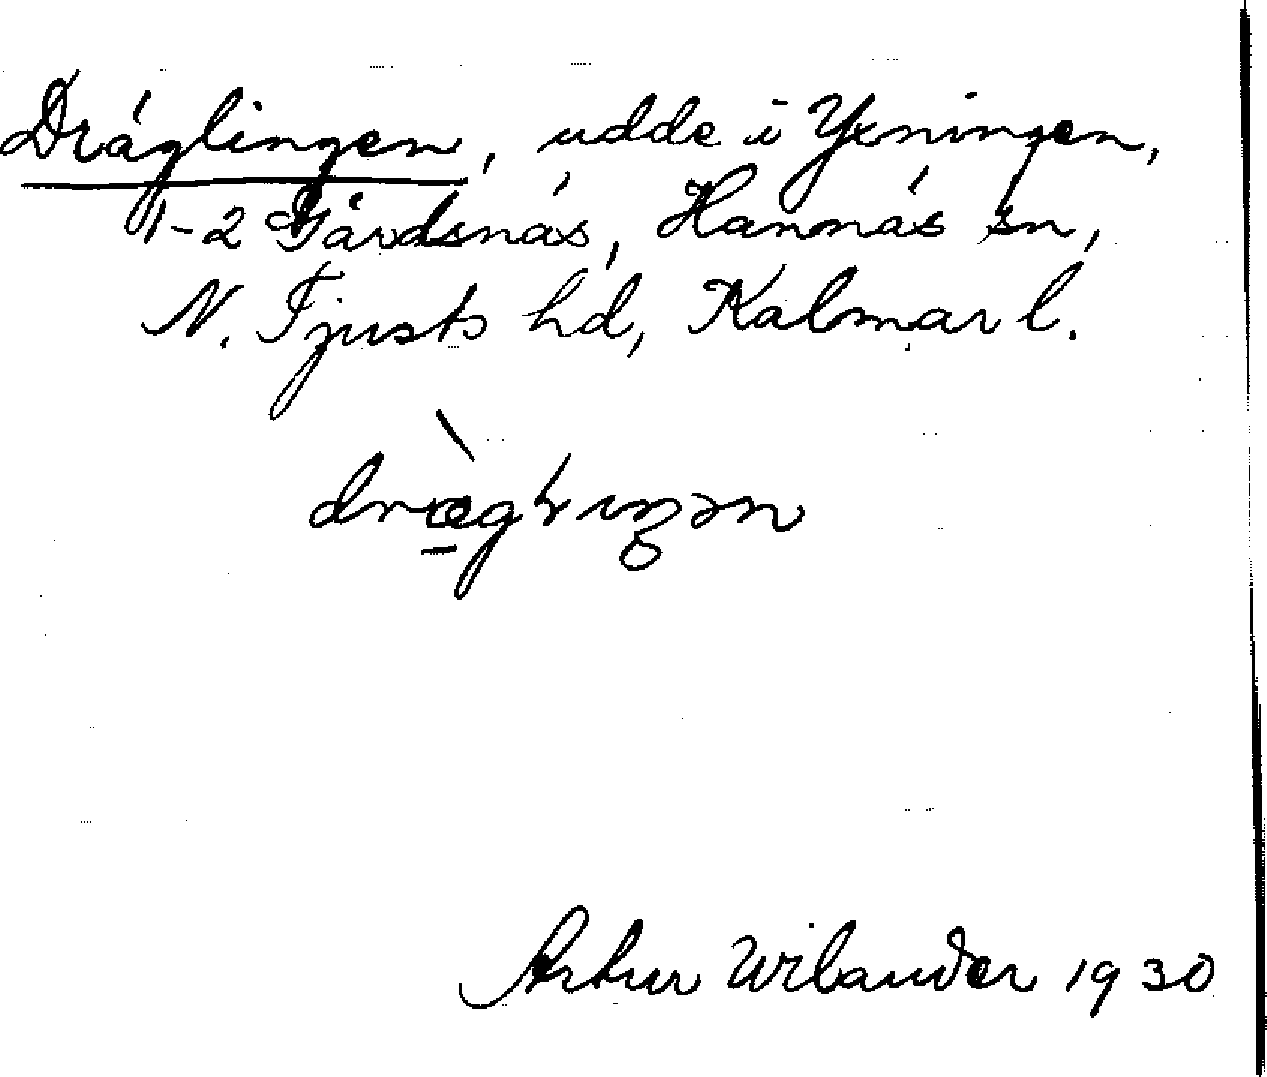 Dräglingen, udde i Yxningen,
1-2 Gårdsnäs, Hannäs sn,
N. Tjusts hd, Kalmar l.
Artur Wilander 1930